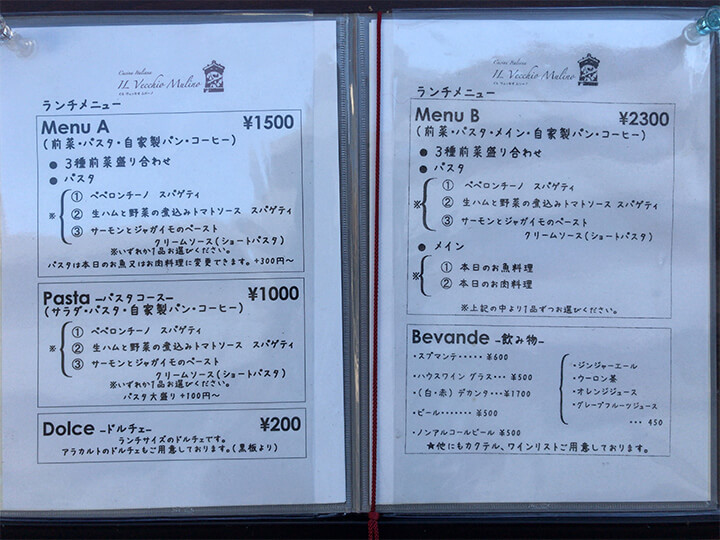 Cucina Italiana
IL Vecchio Mulino
ランチメニュー
Menu A ¥1500
(前菜・パスタ・自家製パン・コーヒー)
● 3種前菜盛り合わせ
● パスタ
※ ① ペペロンチーノ スパゲティ
② 生ハムと野菜の煮込みトマトソース スパゲティ
③ サーモンとジャガイモのペースト
クリームソース(ショートパスタ)
※いずれか1品お選びください。
パスタは本日のお魚又はお肉料理に変更できます。+300円〜
Pasta –パスタコース– ¥1000
(サラダ・パスタ・自家製パン・コーヒー)
※ ① ペペロンチーノ スパゲティ
② 生ハムと野菜の煮込みトマトソース スパゲティ
③ サーモンとジャガイモのペースト
クリームソース(ショートパスタ)
※いずれか1品お選びください。
パスタ大盛り +100円〜
Dolce –ドルチェ– ¥200
ランチサイズのドルチェです。
アラカルトのドルチェもご用意しております。(黒板より)
Cucina Italiana
IL Vecchio Mulino
ランチメニュー
Menu B ¥2300
(前菜・パスタ・メイン・自家製パン・コーヒー)
● 3種前菜盛り合わせ
● パスタ
※ ① ペペロンチーノ スパゲティ
② 生ハムと野菜の煮込みトマトソース スパゲティ
③ サーモンとジャガイモのペースト
クリームソース(ショートパスタ)
● メイン
※ ① 本日のお魚料理
② 本日のお肉料理
※上記の中より1品ずつお選びください。
Bevande –飲み物–
・スプマンテ・・・・・¥600
・ハウスワイン グラス・・・¥500
・(白・赤)デカンタ・・・¥1700
・ビール・・・・・・・¥500
・ノンアルコールビール ¥500
・ジンジャーエール
・ウーロン茶
・オレンジジュース
・グレープフルーツジュース
・・・ 450
★他にもカクテル、ワインリストご用意しております。